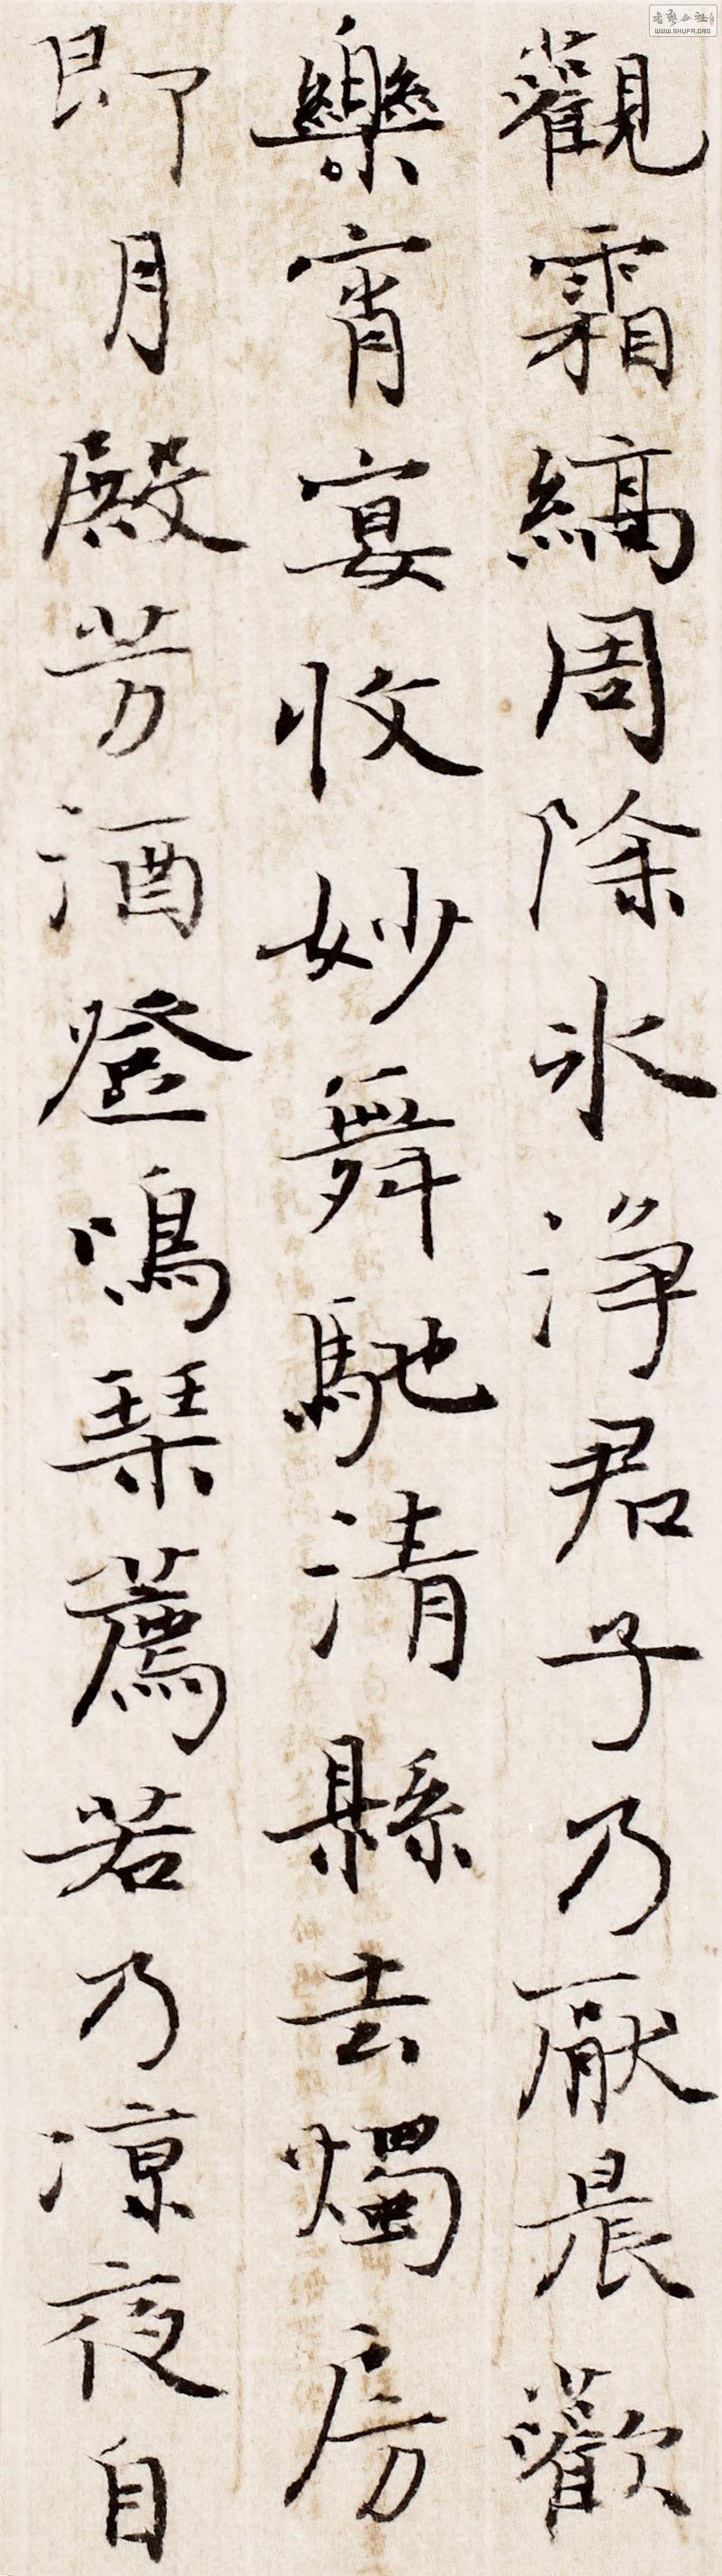 觀霜縞周除冰淨君子乃厭晨歡
樂宵宴收妙舞馳清縣去燭房
即月殿芳酒登鳴琴薦若乃涼夜自
WWW.SHUFA.ORG